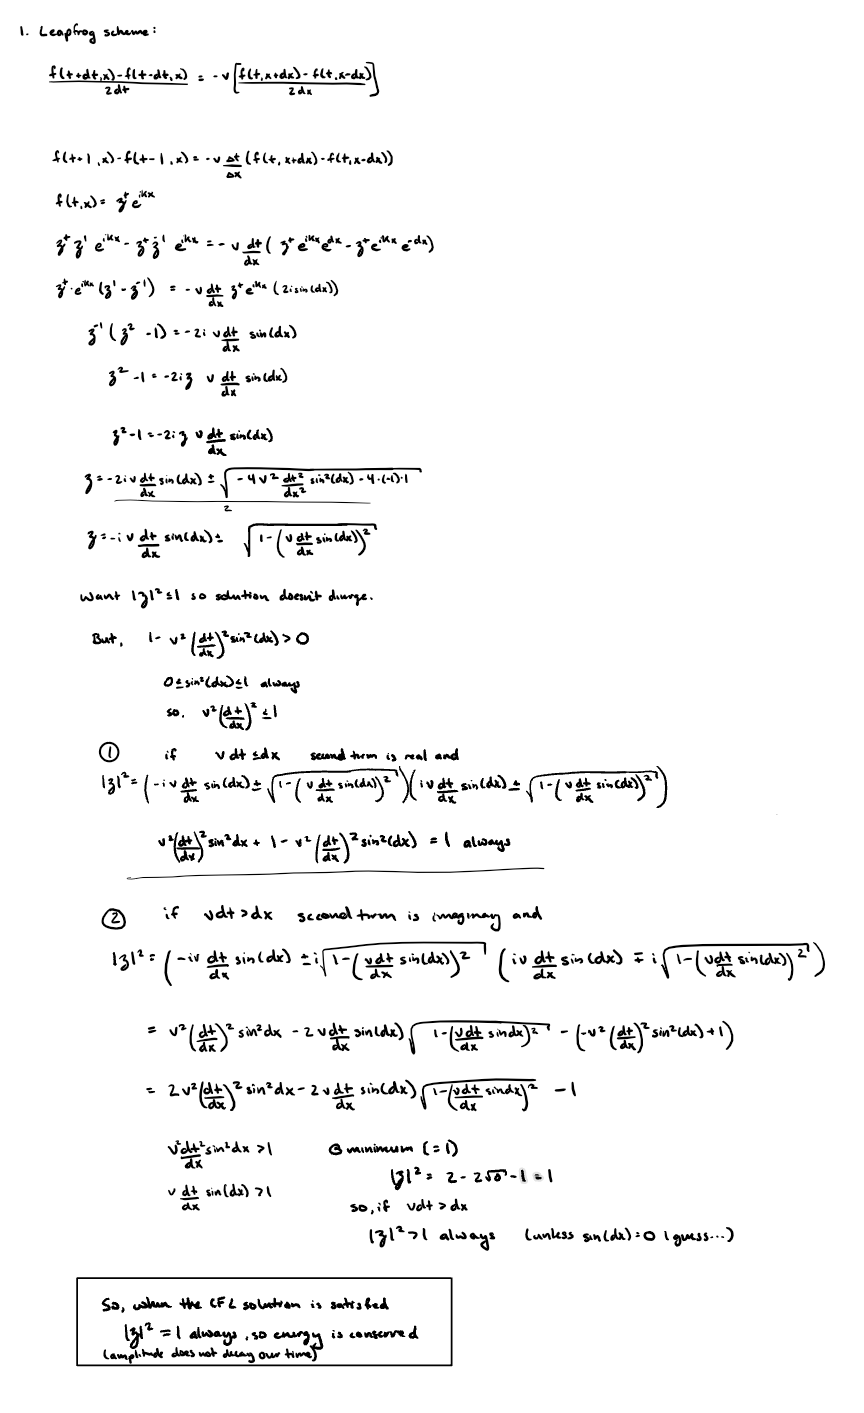 1. Leapfrog scheme:
f(t+dt,x)-f(t-dt,x) / 2dt = -v[f(t,x+dx)-f(t,x-dx) / 2dx]
f(t+1,x)-f(t-1,x)=-v Δt/Δx (f(t,x+dx)-f(t,x-dx))
f(t,x)= z^t e^{ikx}
z^t z^1 e^{ikx} - z^t z^-1 e^{ikx} = -v dt/dx ( z^t e^{ikx} e^{dx} - z^t e^{ikx} e^{-dx})
z^t · e^{ikx} (z^1 - z^-1) = -v dt/dx z^t e^{ikx} (2i sin(dx))
z^-1 (z^2 -1) = -2i v dt/dx sin(dx)
z^2 -1 = -2iz v dt/dx sin(dx)
z^2 -1 = -2iz v dt/dx sin(dx)
z = -2iv dt/dx sin(dx) ± √(-4v^2 dt^2/dx^2 sin^2(dx) - 4·(-1)·1) / 2
z = -iv dt/dx sin(dx) ± √(1-(v dt/dx sin(dx))^2)
want |z|^2 ≤1 so solution doesn't diverge.
But, 1- v^2 (dt/dx)^2 sin^2(dx) > 0
0 ≤ sin^2(dx) ≤ 1 always
so, v^2 (dt/dx)^2 ≤ 1
① if v dt ≤ dx second term is real and
|z|^2 = (-iv dt/dx sin(dx) ± √(1-(v dt/dx sin(dx))^2))(iv dt/dx sin(dx) ± √(1-(v dt/dx sin(dx))^2))
v^2(dt/dx)^2 sin^2dx + 1 - v^2 (dt/dx)^2 sin^2(dx) = 1 always
② if vdt > dx second term is imaginary and
|z|^2 = (-iv dt/dx sin(dx) ± i√(1-(vdt/dx sin(dx))^2) (iv dt/dx sin(dx) ∓ i√(1-(vdt/dx sin(dx))^2))
= v^2 (dt/dx)^2 sin^2dx - 2v dt/dx sin(dx) √(1-(vdt/dx sindx)^2) - (-v^2 (dt/dx)^2 sin^2(dx)+1)
= 2v^2 (dt/dx)^2 sin^2dx - 2v dt/dx sin(dx) √(1-(vdt/dx sindx)^2) - 1
v^2dt^2/dx sin^2dx > 1 @ minimum (=1)
|z|^2 = 2 - 2√0 - 1 = 1
v dt/dx sin(dx) > 1
so, if vdt > dx
|z|^2 > 1 always (unless sin(dx)=0 I guess...)
So, when the CFL solution is satisfied
|z|^2 = 1 always, so energy is conserved
(amplitude does not decay over time)